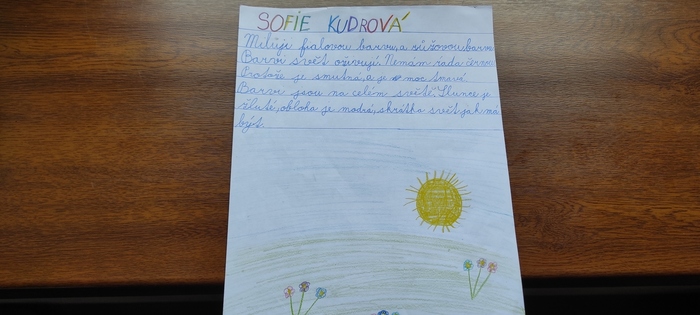 SOFIE KUDROVÁ
Miluji fialovou barvu, a růžovou barvu
Barvi svět oživují. Nemám ráda černou
Protože je smutná, a je moc tmavá.
Barve jsou na celém světě. Slunce je
žluté, obloha je modrá, skrátka svět jak má
být.